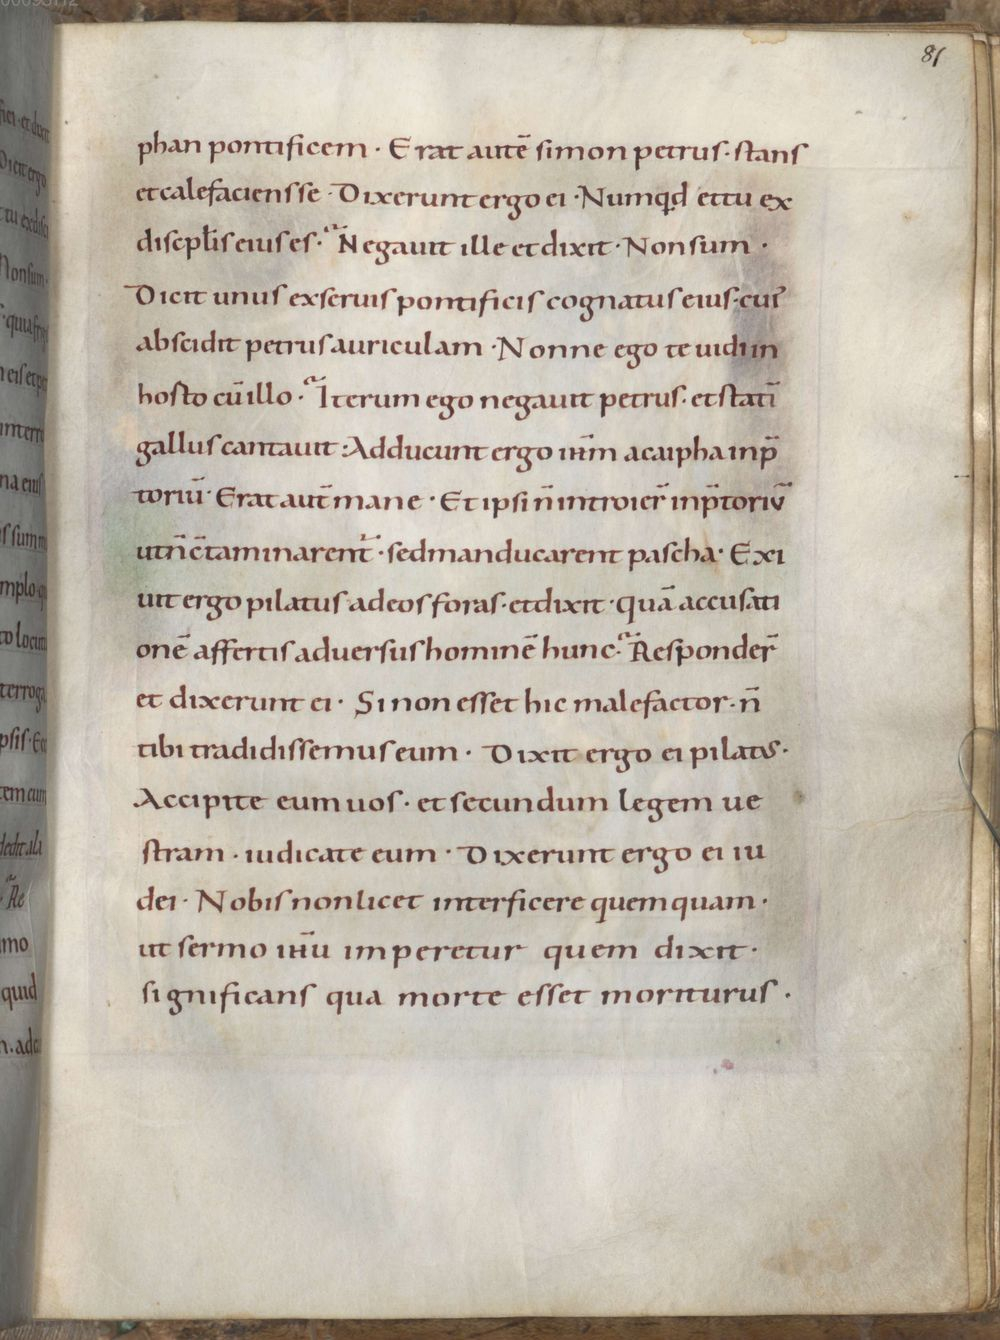 81
phan pontificem · Erat autē simon petrus · stans
et calefaciens se · Dixerunt ergo ei · Numqd et tu ex
discplis eius es · Negauit ille et dixit · Non sum ·
Dicit unus ex seruis pontificis cognatus eius · cui᷒
abscidit petrus auriculam · Nonne ego te uidi in
horto cū illo · Iterum ego negauit petrus · et statī
gallus cantauit : Adducunt ergo ihm̄ a caipha in p̄
toriū · Erat aut̄ mane · Et ipsi n̄ introier̄ in p̄toriū
ut n̄ c̄taminarent᷒ · sed manducarent pascha · Exi
uit ergo pilatus ad eos foras · et dixit · quā accusati
onē affertis aduersus hominē hunc · Responder̄
et dixerunt ei · Si non esset hic malefactor · n̄
tibi tradidissemus eum · Dixit ergo ei pilatus ·
Accipite eum uos · et secundum legem ue
stram · iudicate eum · Dixerunt ergo ei iu
dei · Nobis non licet interficere quemquam ·
ut sermo ihū imperetur quem dixit ·
significans qua morte esset moriturus ·